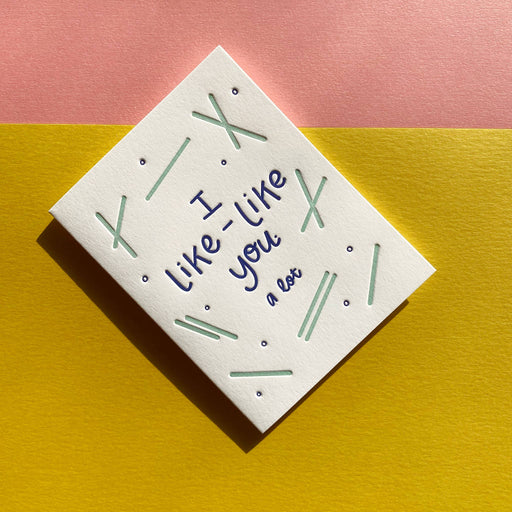 I
like-like
you.
a lot